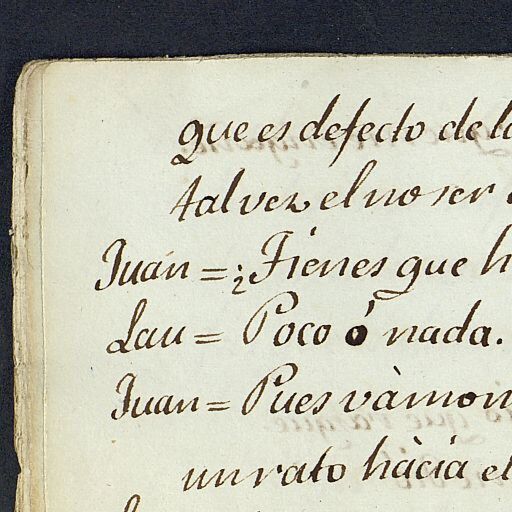 que es defecto de la
tal vez el no ser
Juan = ¿Tienes que h
Lau = Poco ó nada.
Juan = Pues vàmon
un rato hàcia el